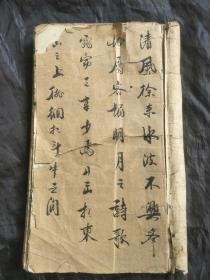 清风徐来水波不兴举
酒属客诵明月之诗歌
窈窕之章少焉月出于東
山之上徘徊於斗牛之间